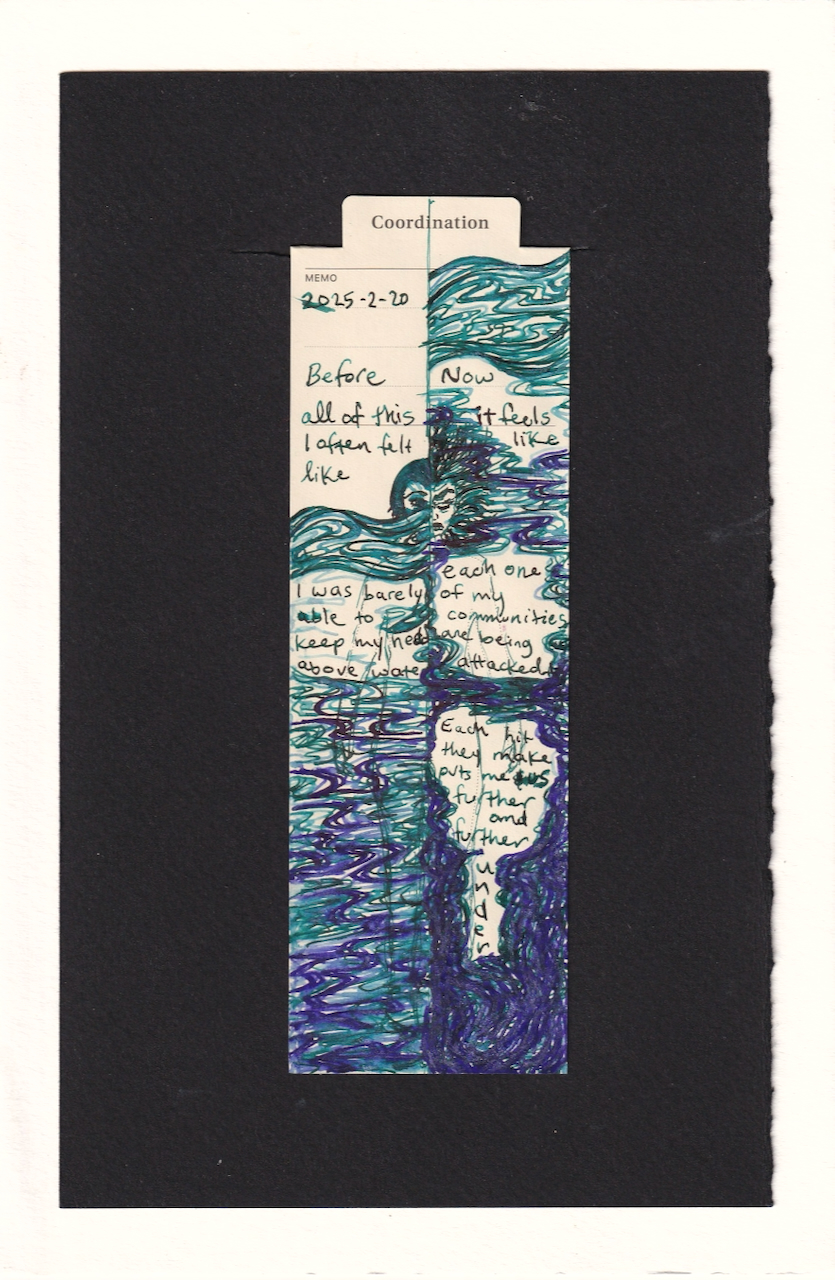 Coordination
MEMO
2025-2-20
Before
all of this
I often felt
like
I was barely
able to
keep my head
above water
Now
it feels
like
each one
of my
communities
are being
attacked.
Each hit
they make
puts me
further
and
further
under